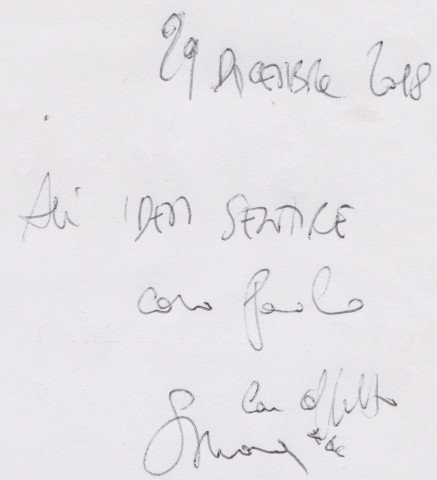 29 DICEMBRE 2018
IDEM SENTIRE
caro Paolo
Con affetto